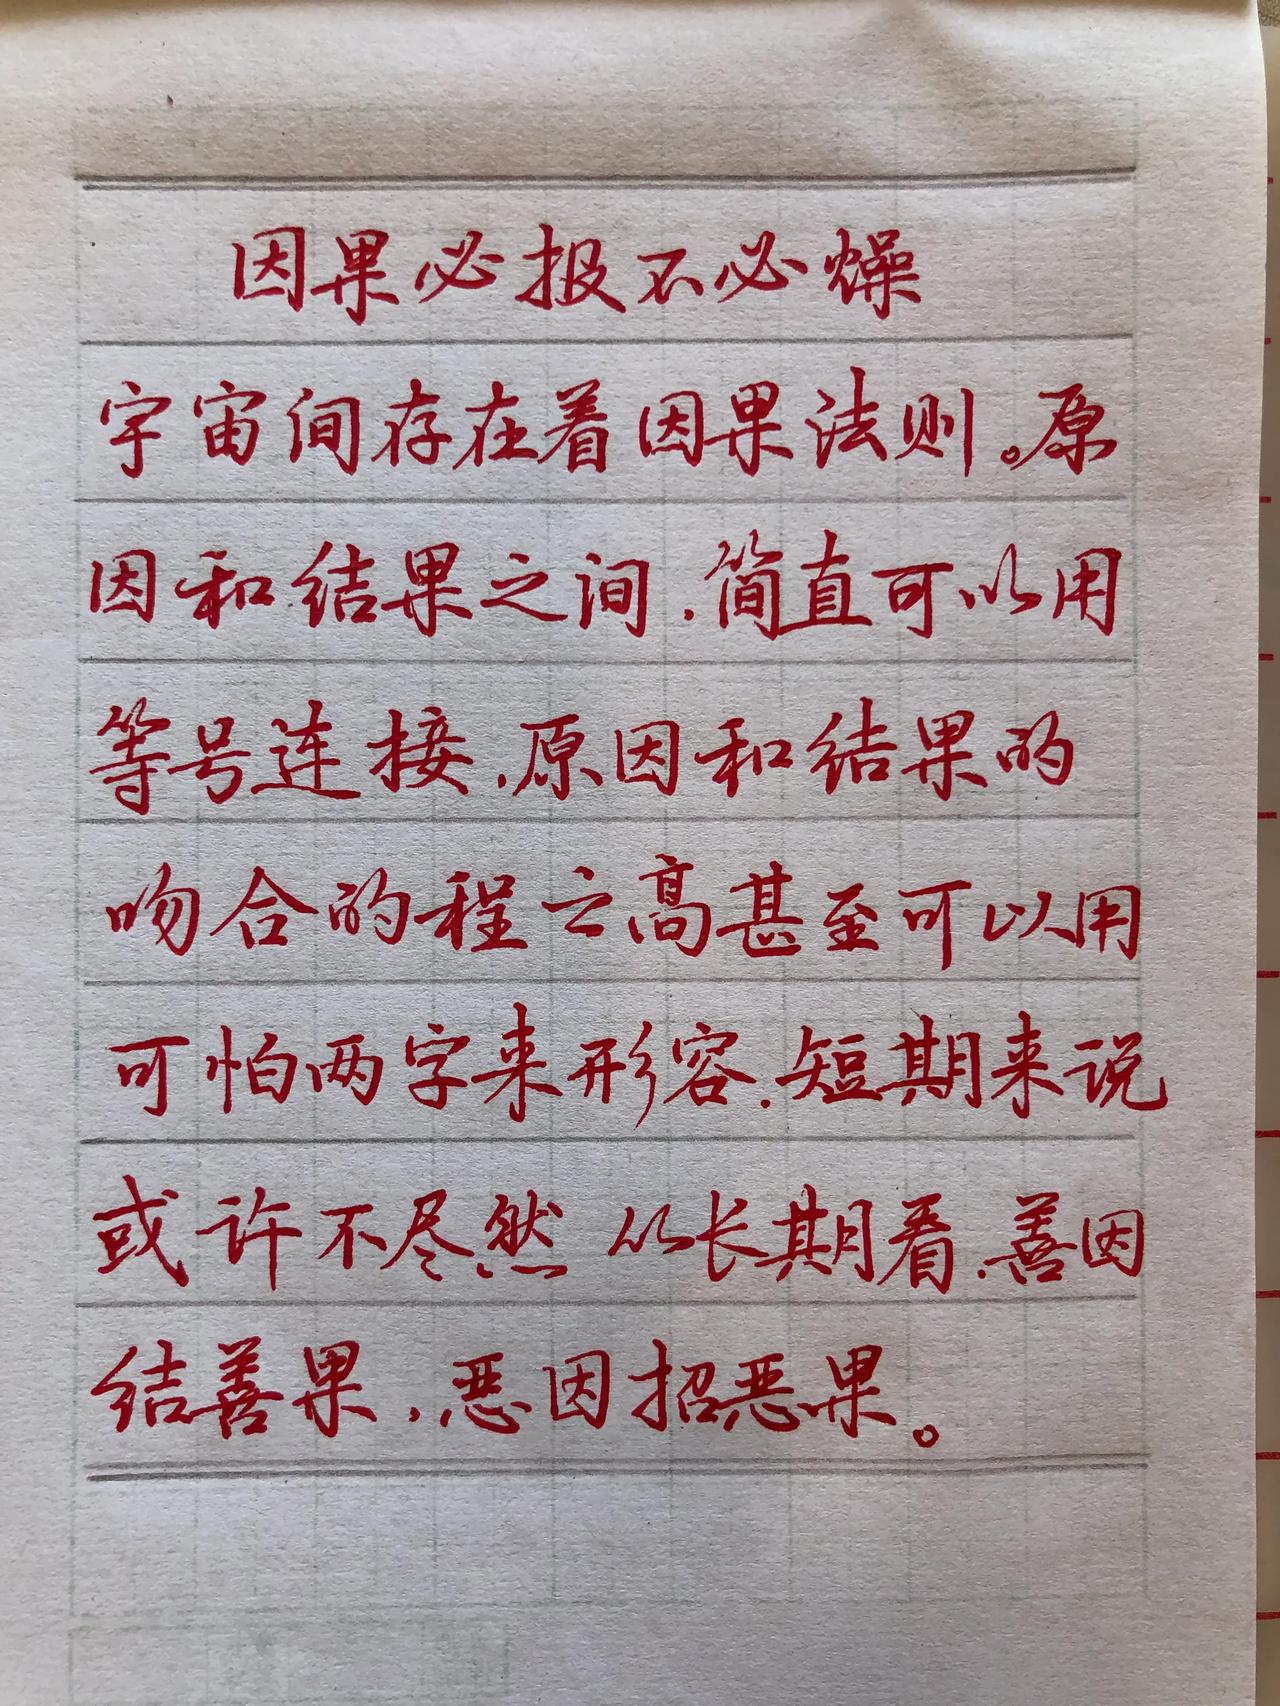 因果必报不必燥
宇宙间存在着因果法则。原
因和结果之间,简直可以用
等号连接,原因和结果的
吻合的程之高甚至可以用
可怕两字来形容.短期来说
或许不尽然 从长期看.善因
结善果,恶因招恶果。